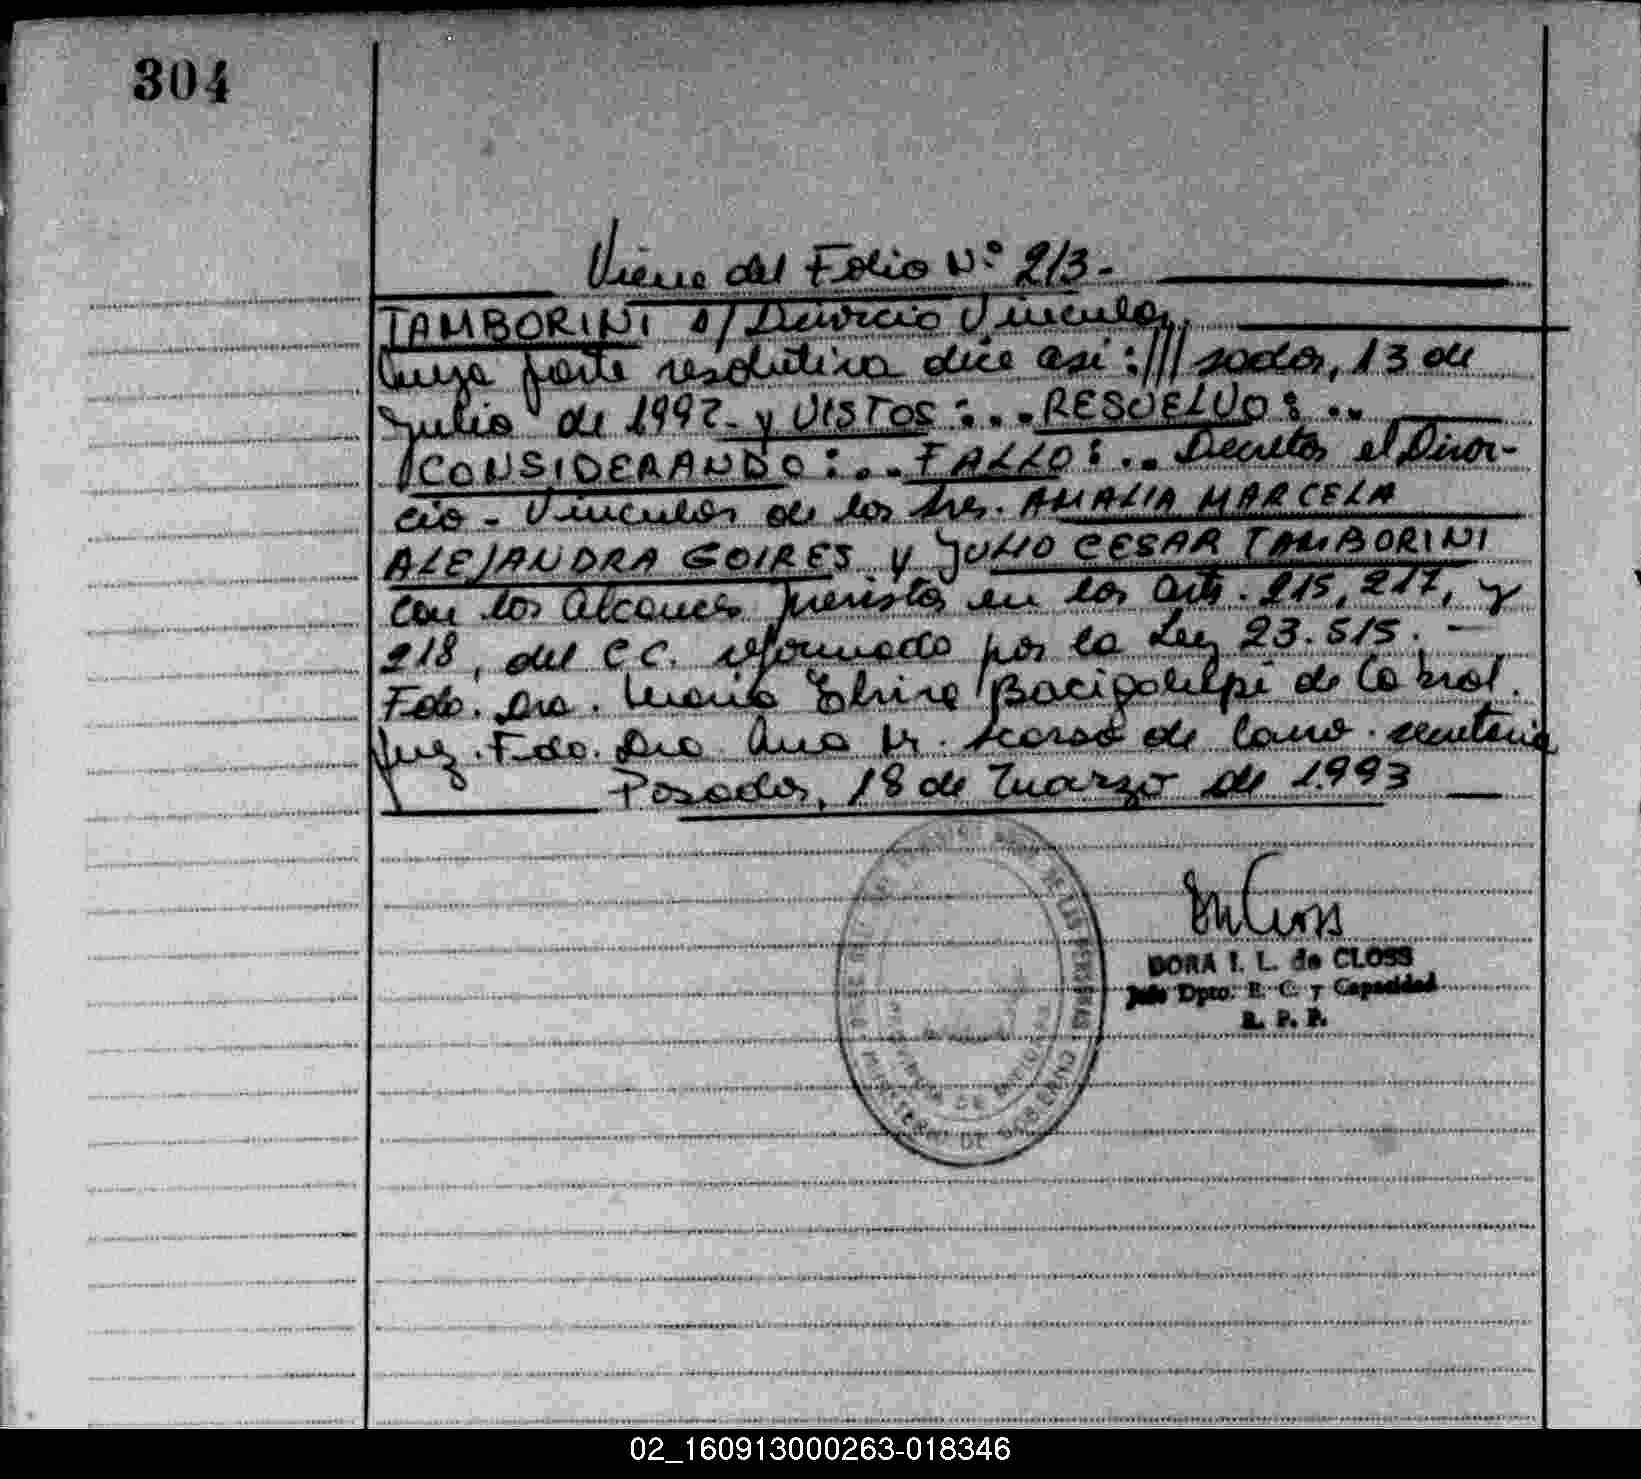 304
Viene del Folio Nº 213.-
TAMBORINI s/ Divorcio Vincular,
Cuya parte resolutiva dice asi:/// sadas, 13 de
Julio de 1992.- y VISTOS:... RESUELVO:...
CONSIDERANDO:... FALLO:... Decretar el Divor-
cio - Vincular de los Sres. AMALIA MARCELA
ALEJANDRA GOIRES y JULIO CESAR TAMBORINI
con los alcances previstos en los arts. 215, 217, y
218, del C C. reformado por la Ley 23.515. —
Fdo. Dra. Maria Elvira Bacigalupi de Cabral.
Juez. Fdo. Dra. Ana M. de secretaria
Posadas, 18 de Marzo de 1.993
DE LAS PERSONAS
PROVINCIA DE MISIONES
MINISTERIO DE GOBIERNO
DORA I. L. de CLOSS
Jefe Dpto. E. C. y Capacidad
R. P. P.
02_160913000263-018346